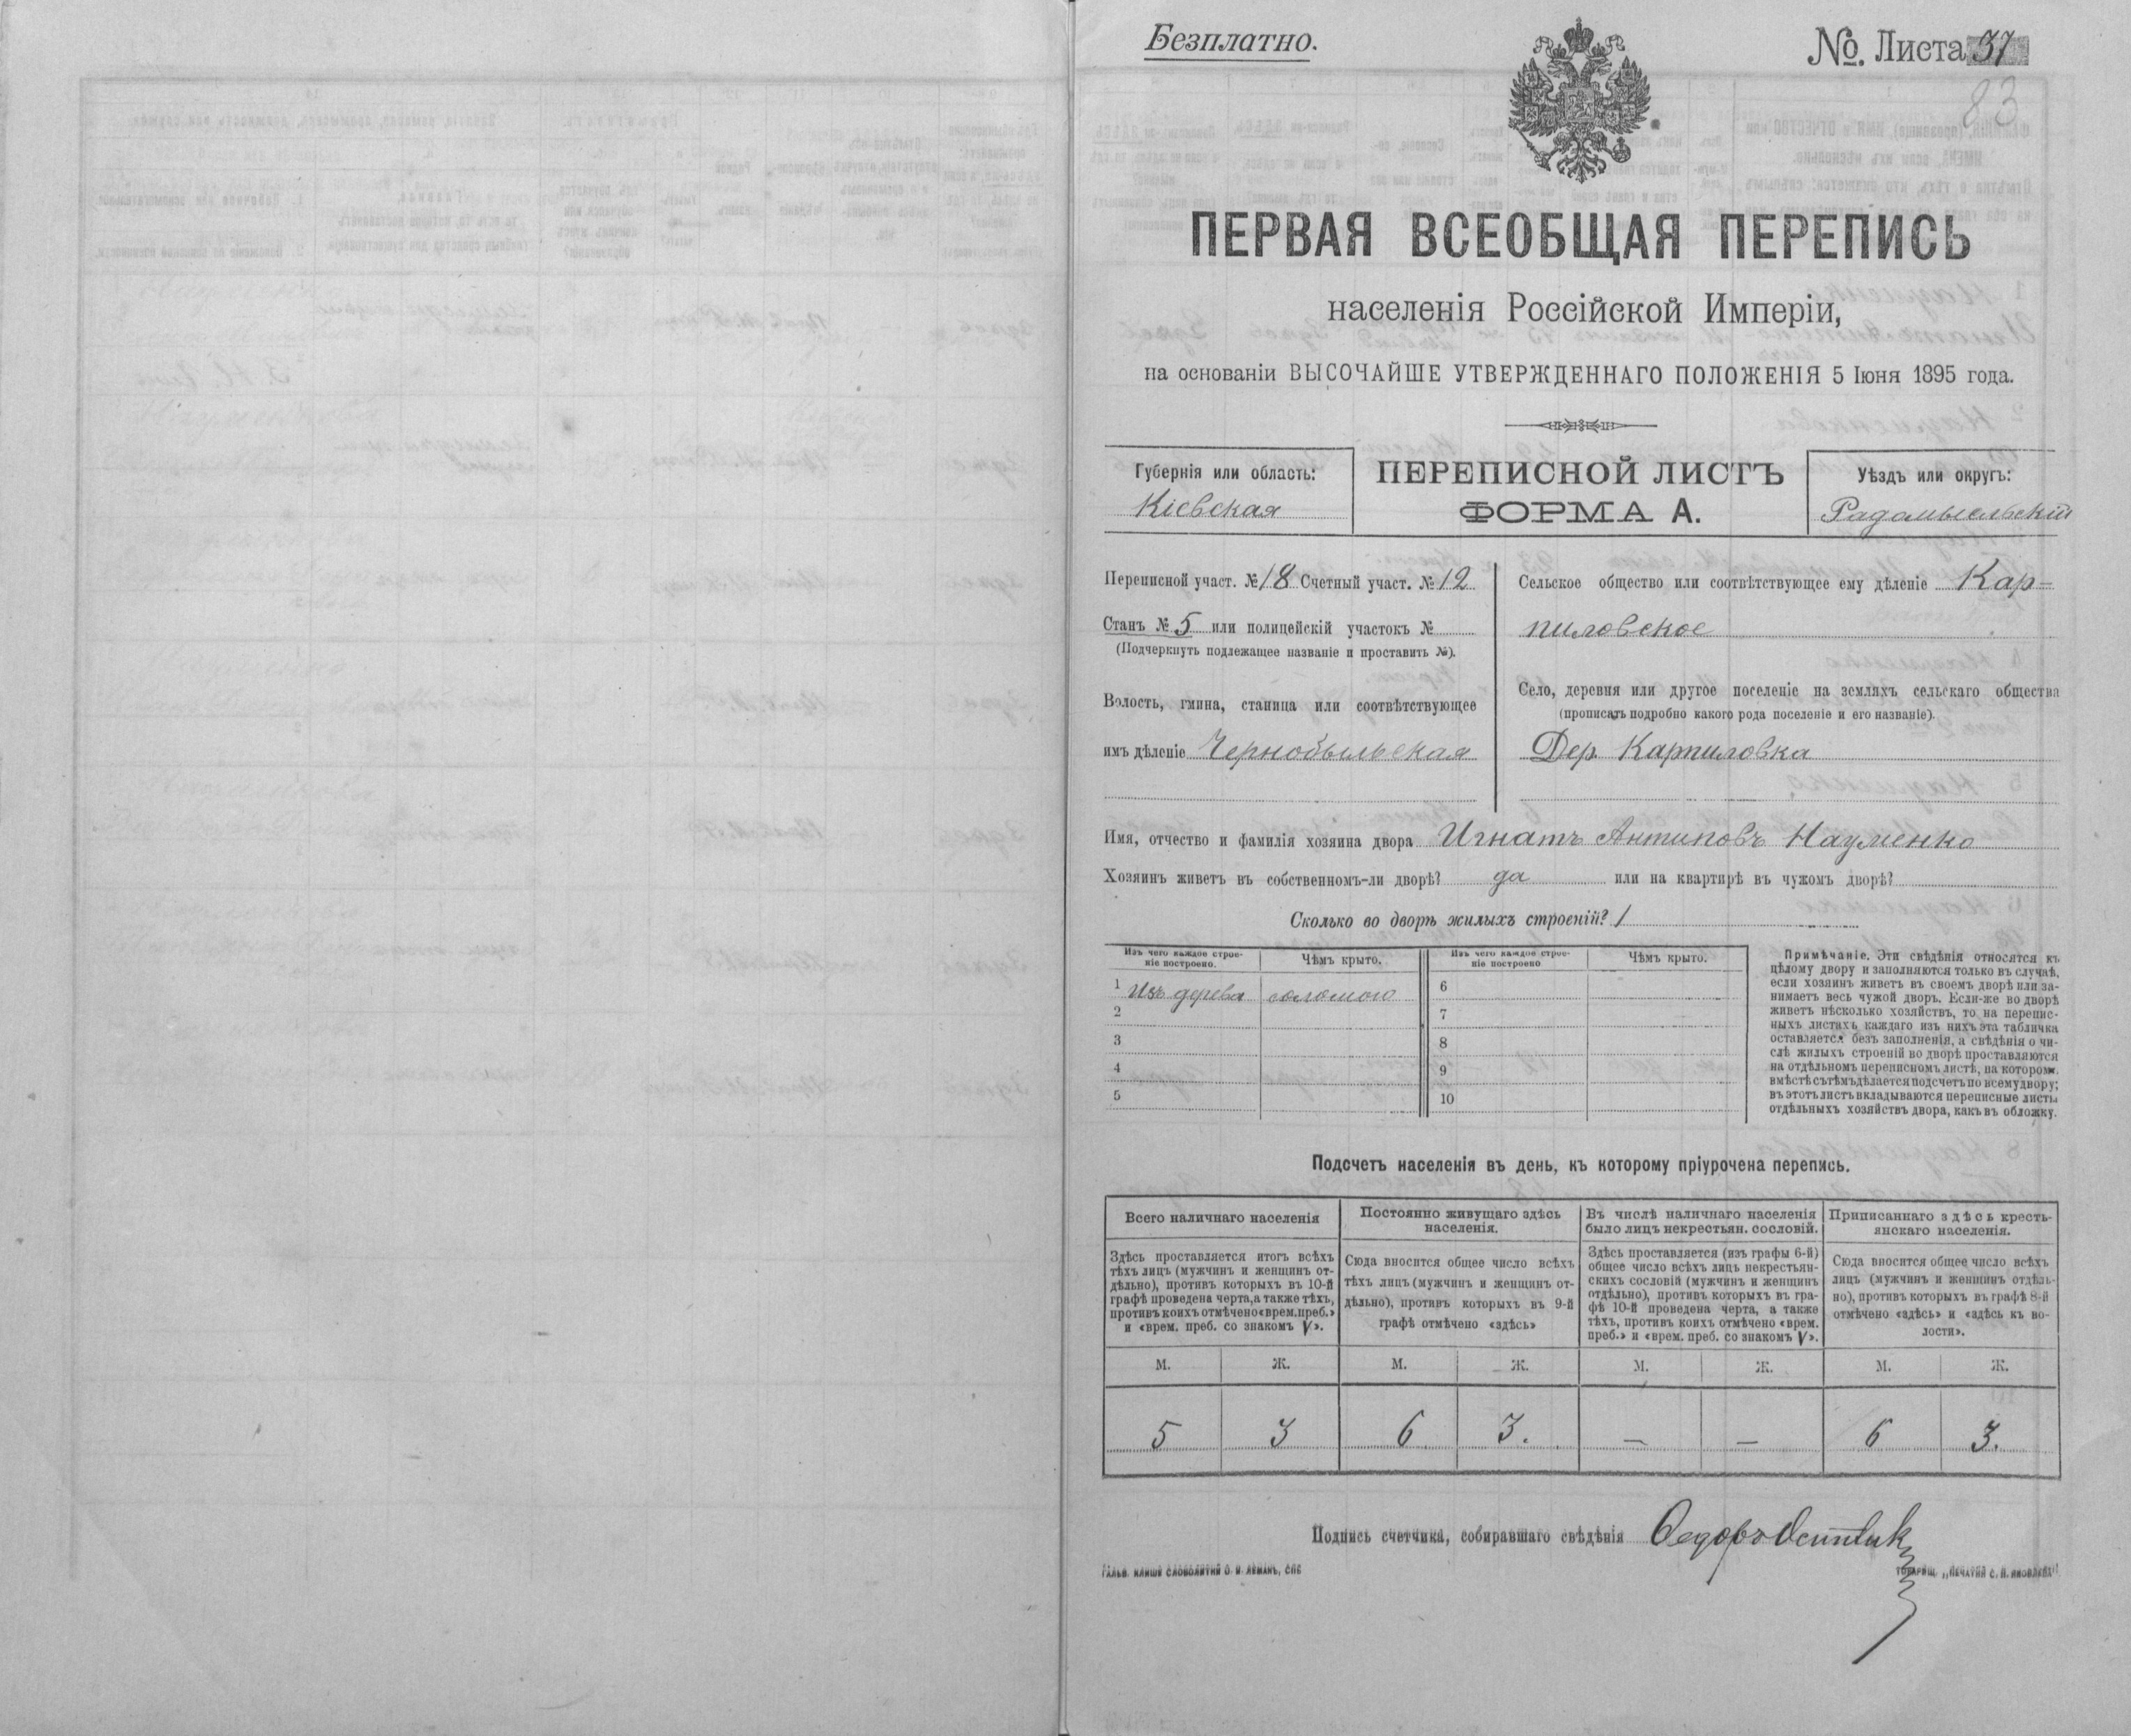 Безплатно.
№. Листа 37
83
ПЕРВАЯ ВСЕОБЩАЯ ПЕРЕПИСЬ
населенія Россійской Имперіи,
на основаніи ВЫСОЧАЙШЕ УТВЕРЖДЕННАГО ПОЛОЖЕНІЯ 5 Іюня 1895 года.
Губернія или область:
Кіевская
ПЕРЕПИСНОЙ ЛИСТЪ
ФОРМА А.
Уѣздъ или округъ:
Радомысльскій
Переписной участ. № 18 Счетный участ. № 12
Станъ № 5 или полицейскій участокъ №
(Подчеркнуть подлежащее названіе и проставить №).
Волость, гмина, станица или соотвѣтствующее
имъ дѣленіе Чернобыльская
Сельское общество или соотвѣтствующее ему дѣленіе Кар-
пиловское
Село, деревня или другое поселеніе на земляхъ сельскаго общества
(прописать подробно какого рода поселеніе и его названіе).
Дер. Карпиловка
Имя, отчество и фамилія хозяина двора Игнатъ Антиповъ Науменко
Хозяинъ живетъ въ собственномъ-ли дворѣ? да или на квартирѣ въ чужомъ дворѣ?
Сколько во дворѣ жилыхъ строеній? 1
Изъ чего каждое строе-
ніе построено.
Чѣмъ крыто.
Изъ чего каждое строе-
ніе построено
Чѣмъ крыто.
1 Изъ дерева соломою 6
2 7
3 8
4 9
5 10
Примѣчаніе. Эти свѣдѣнія относятся къ
цѣлому двору и заполняются только въ случаѣ,
если хозяинъ живетъ въ своемъ дворѣ или за-
нимаетъ весь чужой дворъ. Если-же во дворѣ
живетъ нѣсколько хозяйствъ, то на перепис-
ныхъ листахъ каждаго изъ нихъ эта табличка
оставляется безъ заполненія, а свѣдѣнія о чи-
слѣ жилыхъ строеній во дворѣ проставляются
на отдѣльномъ переписномъ листѣ, на котором.
вмѣстѣ съ тѣмъ дѣлается подсчетъ по всему двору;
въ этотъ листъ вкладываются переписные листы
отдѣльныхъ хозяйствъ двора, какъ въ обложку.
Подсчетъ населенія въ день, къ которому пріурочена перепись.
Всего наличнаго населенія
Здѣсь проставляется итогъ всѣхъ
тѣхъ лицъ (мужчинъ и женщинъ от-
дѣльно), противъ которыхъ въ 10-й
графѣ проведена черта, а также тѣхъ,
противъ коихъ отмѣчено «врем. преб.»
и «врем. преб. со знакомъ V».
Постоянно живущаго здѣсь
населенія.
Сюда вносится общее число всѣхъ
тѣхъ лицъ (мужчинъ и женщинъ от-
дѣльно), противъ которыхъ въ 9-й
графѣ отмѣчено «здѣсь»
Въ числѣ наличнаго населенія
было лицъ некрестьян. сословій.
Здѣсь проставляется (изъ графы 6-й)
общее число всѣхъ лицъ некрестьян-
скихъ сословій (мужчинъ и женщинъ
отдѣльно), противъ которыхъ въ гра-
фѣ 10-й проведена черта, а также
тѣхъ, противъ коихъ отмѣчено «врем.
преб.» и «врем. преб. со знакомъ V».
Приписаннаго здѣсь кресть-
янскаго населенія.
Сюда вносится общее число всѣхъ
лицъ (мужчинъ и женщинъ отдѣль-
но), противъ которыхъ въ графѣ 8-й
отмѣчено «здѣсь» и «здѣсь къ во-
лости».
М. Ж. М. Ж. М. Ж. М. Ж.
5 3 6 3. — — 6 3.
Подпись счетчика, собиравшаго свѣдѣнія Ѳедоръ
ГАЛЬВ. КЛИШЕ СЛОВОЛИТНИ О. И. ЛЕМАНЪ, СПБ
ТОВАРИЩ. „ПЕЧАТНЯ С. П. ЯКОВЛЕВА"